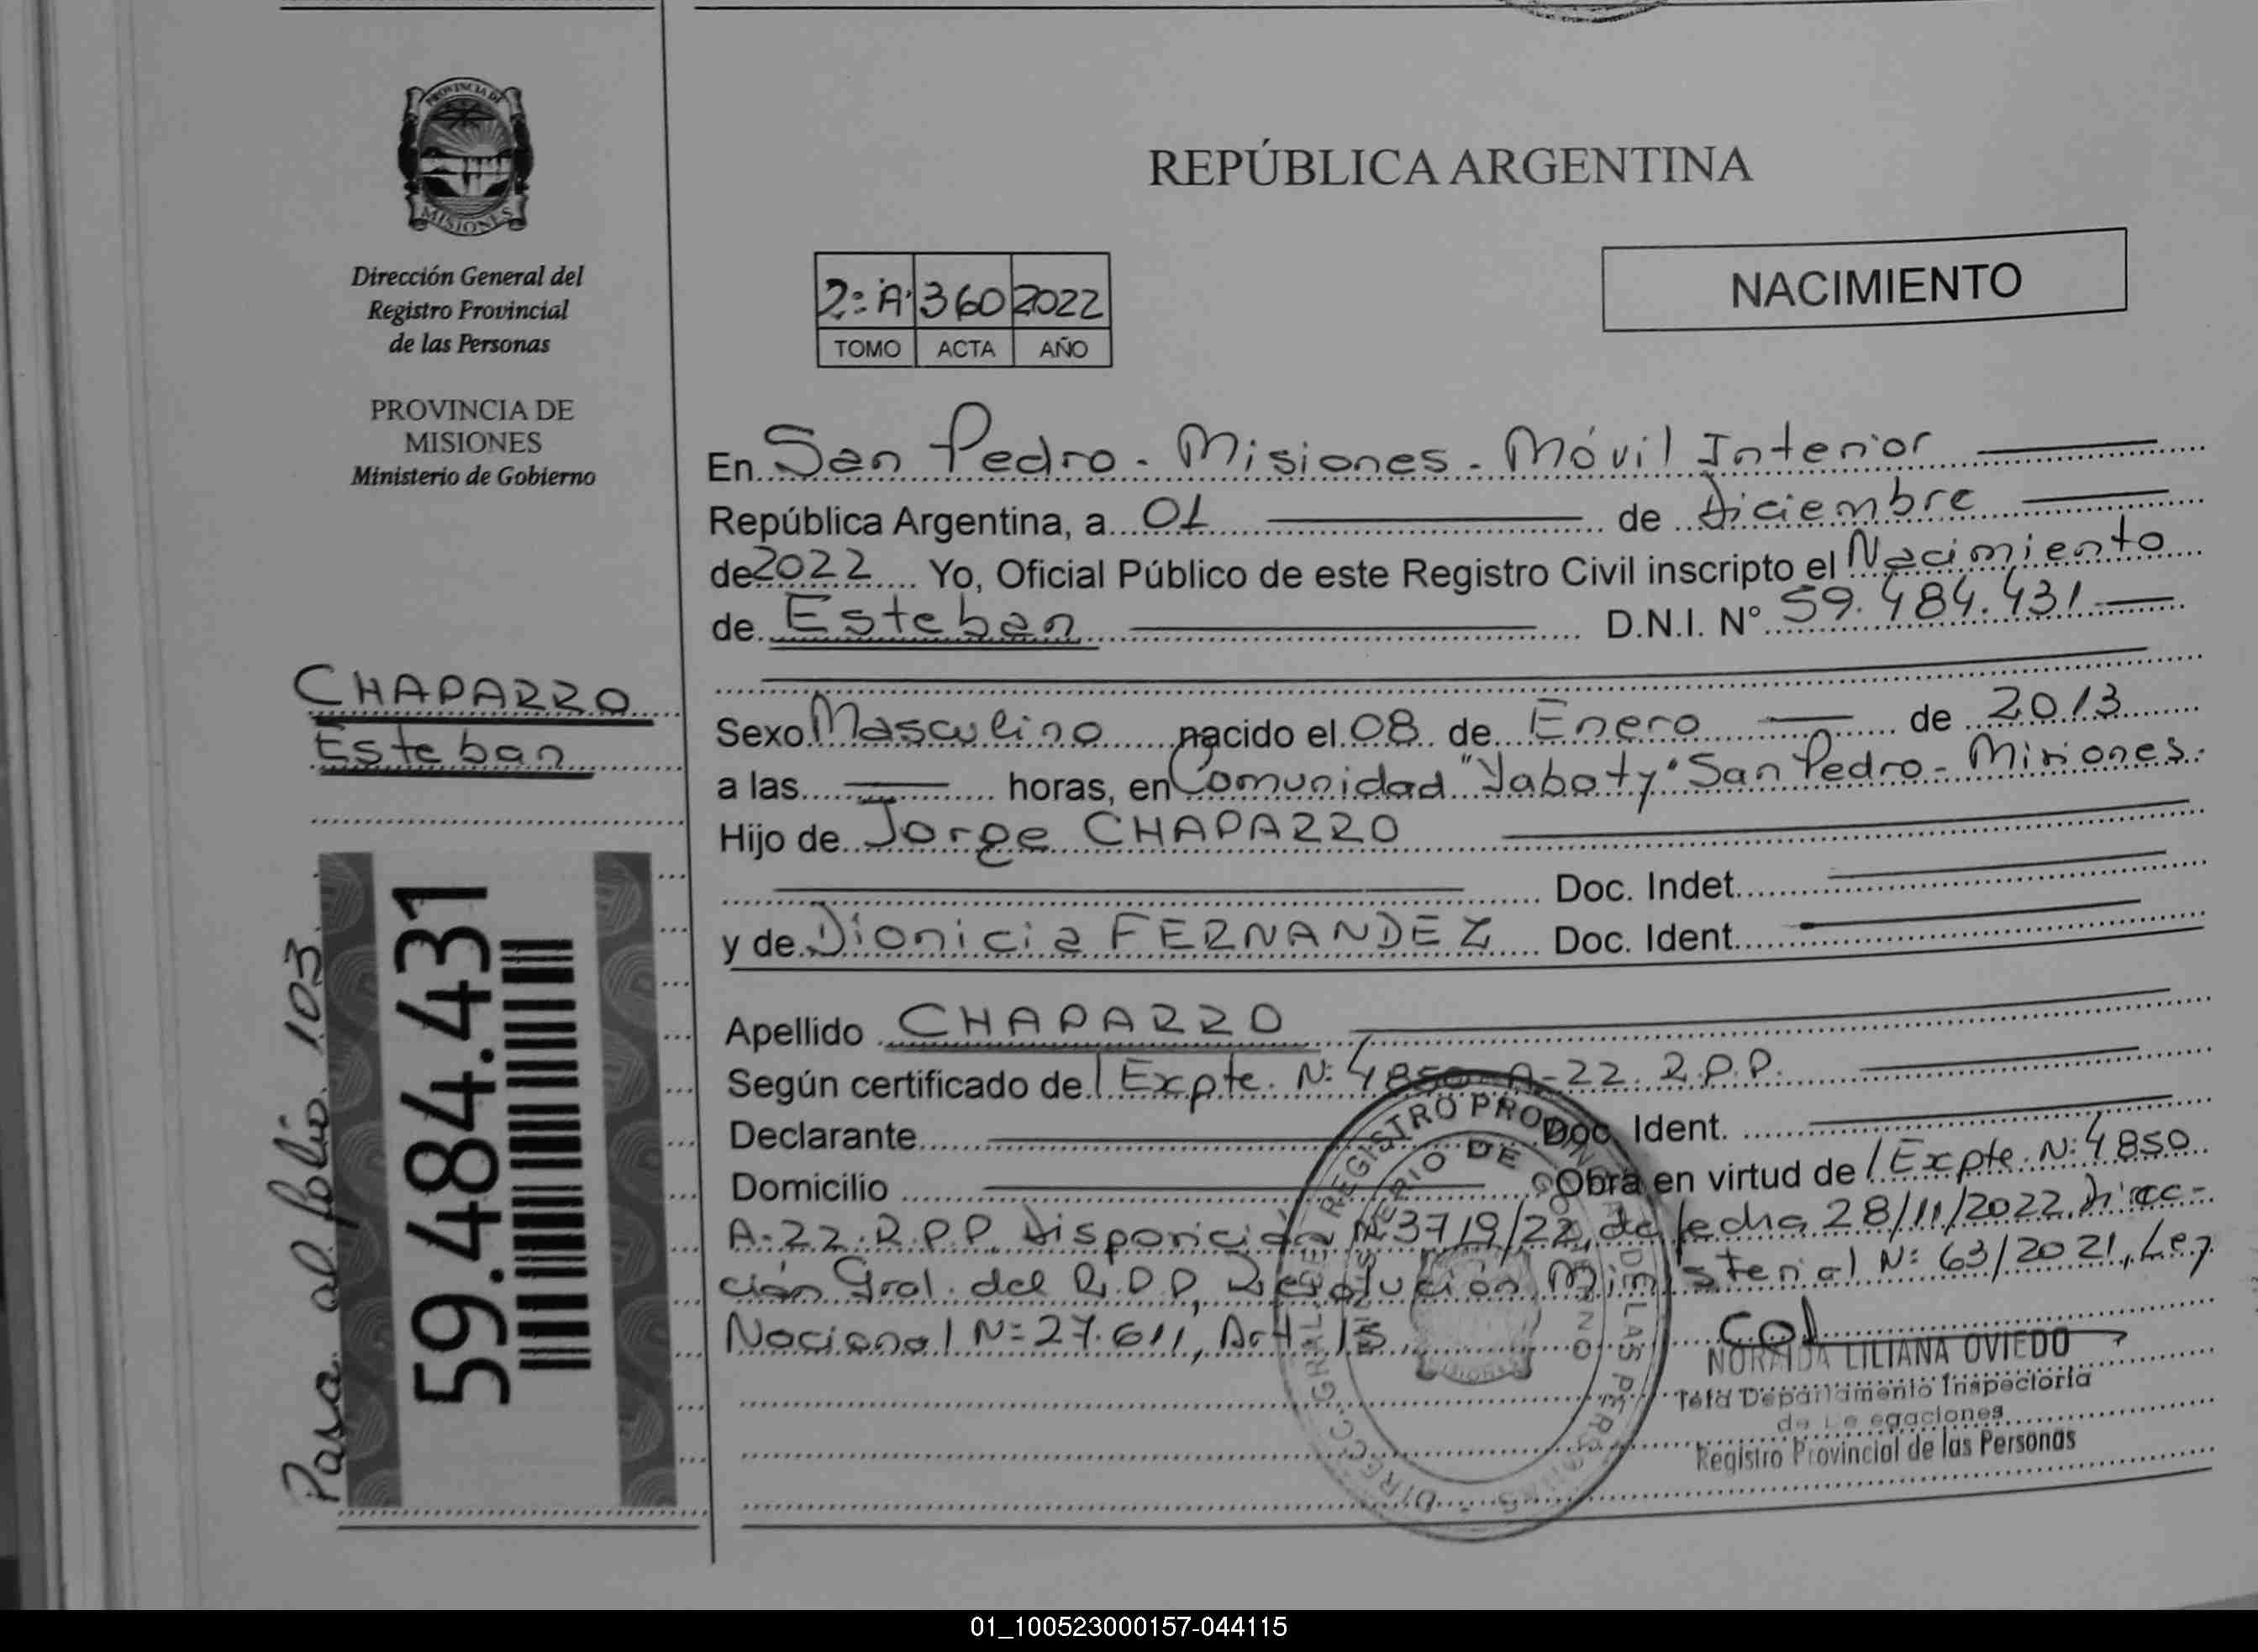 PROVINCIA DE
MISIONES
Dirección General del
Registro Provincial
de las Personas
PROVINCIA DE
MISIONES
Ministerio de Gobierno
CHAPARRO
Esteban
Pasa al folio 103.
59.484.431
REPÚBLICA ARGENTINA
NACIMIENTO
2º A 360 2022
TOMO ACTA AÑO
En San Pedro - Misiones - Móvil Interior
República Argentina, a 01 de Diciembre
de 2022 Yo, Oficial Público de este Registro Civil inscripto el Nacimiento
de Esteban D.N.I. Nº 59.484.431
Sexo Masculino nacido el 08 de Enero de 2013
a las horas, en Comunidad "Yaboty" San Pedro - Misiones.
Hijo de Jorge CHAPARRO
Doc. Indet.
y de Dionicia FERNANDEZ Doc. Ident.
Apellido CHAPARRO
Según certificado de Expte. Nº 4850-A-22. R.P.P.
Declarante Doc. Ident.
Domicilio Obra en virtud de Expte. Nº 4850
A-22. R.P.P. Disposición Nº 3719/22, de fecha 28/11/2022, Direc-
ción Gral. del R.P.P, Resolución Ministerial Nº 63/2021, Ley
Nacional Nº 27.611, Art. 15
NORAIDA LILIANA OVIEDO
Departamento Inspectoría
de Delegaciones
Registro Provincial de las Personas
01_100523000157-044115